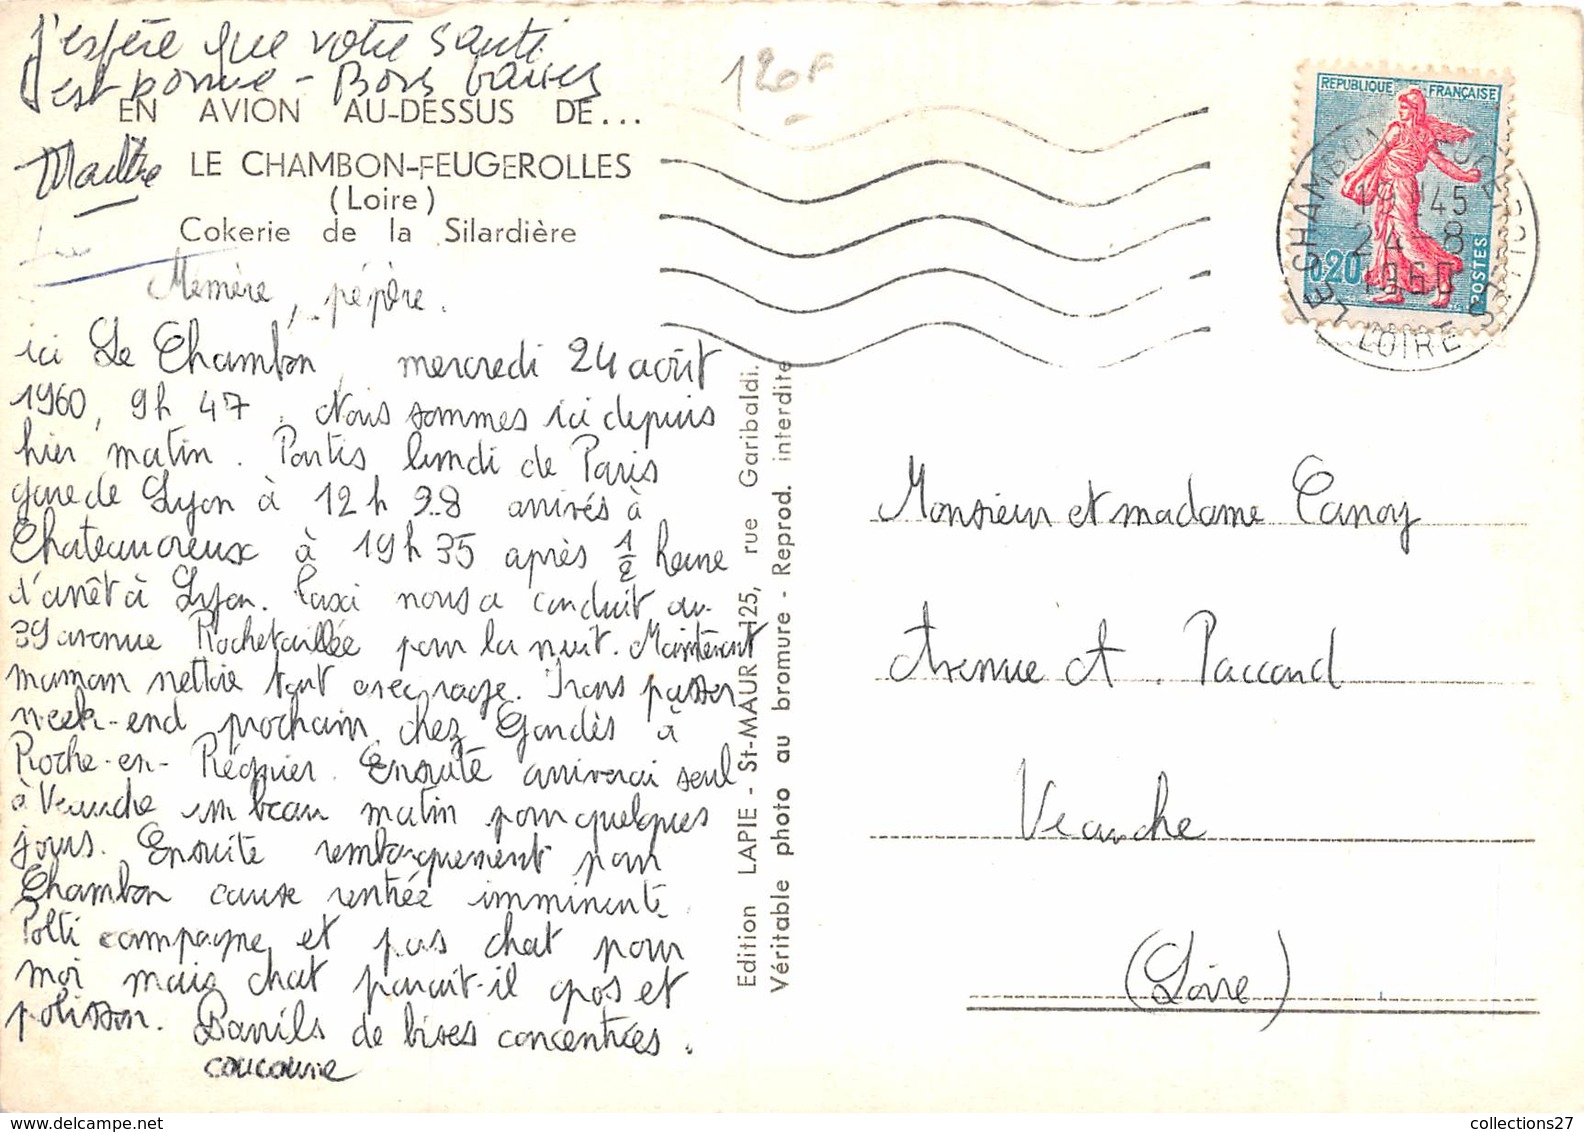 J'espère que votre santé
est bonne - Bons baisers
EN AVION AU-DESSUS DE...
LE CHAMBON-FEUGEROLLES
(Loire)
Cokerie de la Silardière
Mémère, pépère.
ici Le Chambon, mercredi 24 août
1960, 9h 47. Nous sommes ici depuis
hier matin. Partis lundi de Paris
gare de Lyon à 12h 28 arrivés à
Chateaucreux à 19h 35 après 1/2 heure
d'arrêt à Lyon. Taxi nous a conduit au
39 avenue Rochetaillée pour la nuit. Maintenant
maman nettoie tout avec rage. Irons passer
week-end prochain chez Gardès à
Roche-en-Régnier. Ensuite arriverai seul
à Veauche un beau matin pour quelques
jours. Ensuite rembarquement pour
Chambon cause rentrée imminente.
Polti campagne et pas chat pour
moi mais chat parait-il gros et
polisson. Barrils de bises concentrées.
120F
REPUBLIQUE FRANÇAISE
0,20
POSTES
LE CHAMBON FEUGEROLLES
19H45
24-8
1960
LOIRE
Edition LAPIE - St-MAUR 125, rue Garibaldi.
Véritable photo au bromure - Reprod. interdite
Monsieur et madame Canoy
Avenue A. Paccard
Veauche
(Loire)
collections27